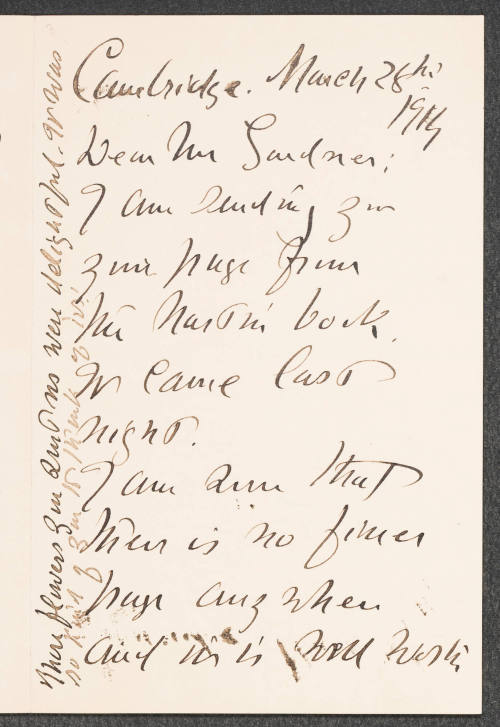 Cambridge. March 28th
1914
Dear Mrs Gardner:
I am sending you
your page from
the Martin book.
It came last
night.
I am sure that
there is no finer
page anywhere
and it is well worth
flowers you sent us were delightful. It was
so kind of you to think of it!